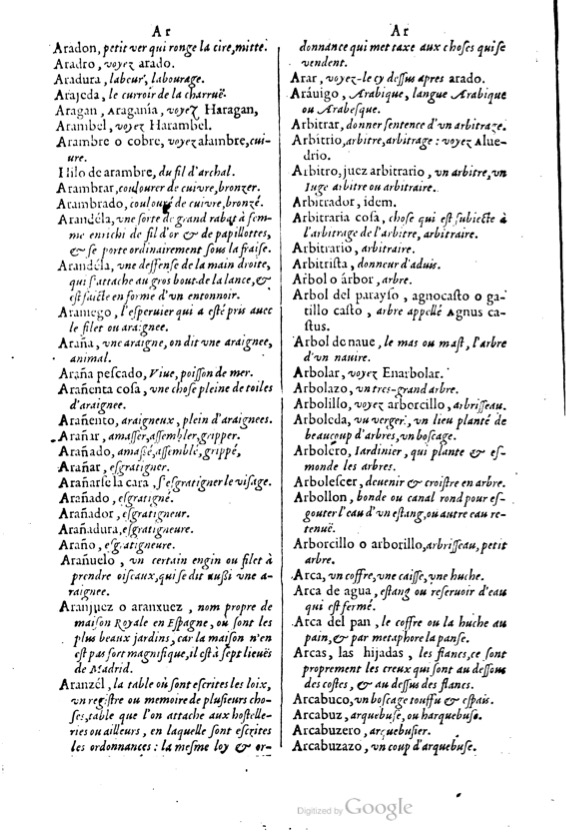 Ar
Aradon, petit ver qui ronge la cire, mitte.
Aradro, voyez arado.
Aradura, labeur, labourage.
Arajeda, le curroir de la charruë.
Aragan, Aragania, voyez Haragan,
Arambel, voyez Harambel.
Arambre o cobre, voyez alambre, cui-
ure.
Hilo de arambre, du fil d'archal.
Arambrar, coulourer de cuivre, bronzer.
Arambrado, coulouré de cuivre, bronzé.
Arandéla, vne sorte de grand rabat à fem-
me enrichi de fil d'or & de papillottes,
& se porte ordinairement sous la fraise.
Arandéla, vne deffense de la main droite,
qui s'attache au gros bout de la lance, &
est faicte en forme d'vn entonnoir.
Araniego, l'esperuier qui a esté pris auec
le filet ou araignee.
Araña, vne araigne, on dit vne araignee,
animal.
Araña pescado, Viue, poisson de mer.
Arañenta cosa, vne chose pleine de toiles
d'araignee.
Arañento, araigneux, plein d'araignees.
Arañar, amasser, assembler, gripper.
Arañado, amassé, assemblé, grippé,
Arañar, esgratigner.
Arañarse la cara, s'esgratigner le visage.
Arañado, esgratigné.
Arañador, esgratigneur.
Arañadura, esgratigneure.
Araño, esgratigneure.
Arañuelo, vn certain engin ou filet à
prendre oiseaux, qui se dit aussi vne a-
raignee.
Aranjuez o aranxuez, nom propre de
maison Royale en Espagne, ou sont les
plus beaux jardins, car la maison n'en
est pas fort magnifique, il est à sept lieuës
de Madrid.
Aranzél, la table où sont escrites les loix,
vn registre ou memoire de plusieurs cho-
ses, table que l'on attache aux hostelle-
ries ou ailleurs, en laquelle sont escrites
les ordonnances : la mesme loy & or-
Ar
donnance qui met taxe aux choses qui se
vendent.
Arar, voyez-le cy dessus apres arado.
Aráuigo, Arabique, langue Arabique
ou Arabesque.
Arbitrar, donner sentence d'vn arbitrage.
Arbitrio, arbitre, arbitrage : voyez Alue-
drio.
Arbitro, juez arbitrario, vn arbitre, vn
Iuge arbitre ou arbitraire.
Arbitrador, idem.
Arbitraria cosa, chose qui est subiecte à
l'arbitrage de l'arbitre, arbitraire.
Arbitrario, arbitraire.
Arbitrista, donneur d'aduis.
Arbol o árbor, arbre.
Arbol del parayso, agnocasto o ga-
tillo casto, arbre appellé Agnus ca-
stus.
Arbol de naue, le mas ou mast, l'arbre
d'vn nauire.
Arbolar, voyez Enarbolar.
Arbolazo, vn tres-grand arbre.
Arbolillo, voyez arborcillo, arbrisseau.
Arboleda, vn verger, vn lieu planté de
beaucoup d'arbres, vn boscage.
Arbolero, Iardinier, qui plante & es-
monde les arbres.
Arbolescer, deuenir & croistre en arbre.
Arbollon, bonde ou canal rond pour es-
gouter l'eau d'vn estang, ou autre eau re-
tenuë.
Arborcillo o arborillo, arbrisseau, petit
arbre.
Arca, vn coffre, vne caisse, vne huche.
Arca de agua, estang ou reseruoir d'eau
qui est fermé.
Arca del pan, le coffre ou la huche au
pain, & par metaphore la panse.
Arcas, las hijadas, les flancs, ce sont
proprement les creux qui sont au dessous
des costes, & au dessus des flancs.
Arcabuco, vn boscage touffu & espais.
Arcabuz, arquebuse, ou harquebuse.
Arcabuzero, arquebusier.
Arcabuzazo, vn coup d'arquebuse.
Digitized by Google